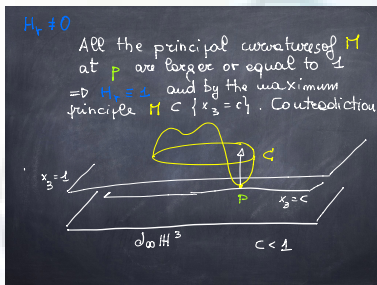 H_r ≠ 0
All the principal curvatures of M
at p are larger or equal to 1
⇒ H_r = 1 and by the maximum
principle M ⊂ {x_3 = c}. Contradiction
C
x_3 = 1
p
x_3 = c
∂_∞ ℍ^3
C < 1